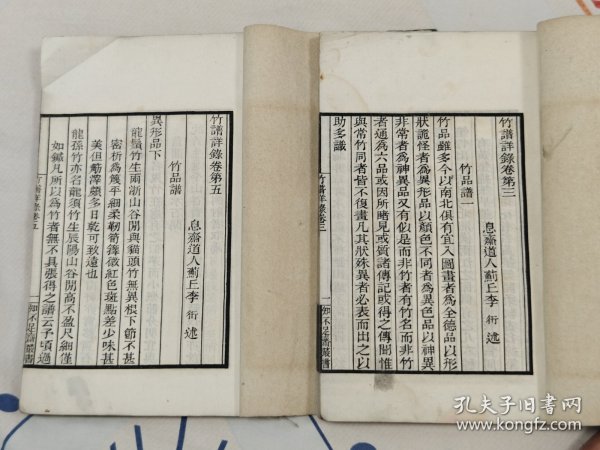 竹譜詳錄卷第三
息齋道人薊丘李 衎 述
竹品譜一
竹品雖多今以南北俱有宜入圖畫者為全德品以形
狀詭怪者為異形品以顏色不同者為異色品以神異
非常者為神異品又有似是而非竹者有竹名而非竹
者通為六品或因所睹見或質諸傳記或得之傳聞惟
與常竹同者皆不復畫凡其狀殊異者必表而出之以
助多識
竹譜詳錄卷三
一
知不足齋叢書
竹譜詳錄卷第五
息齋道人薊丘李 衎 述
竹品譜
異形品下
龍鬚竹生兩浙山谷間與貓頭竹無異根下節不甚
密析為篾平細柔韌箭籜微紅色斑點差少味甚
美但觔滓頗多日乾可致遠也
龍孫竹亦名龍須竹生辰陽山谷間高不盈尺細僅
如鍼凡所以為竹者無不具張得之譜云予頃過
竹譜詳錄卷五
一
知不足齋叢書
孔夫子旧书网
www.kongfz.com